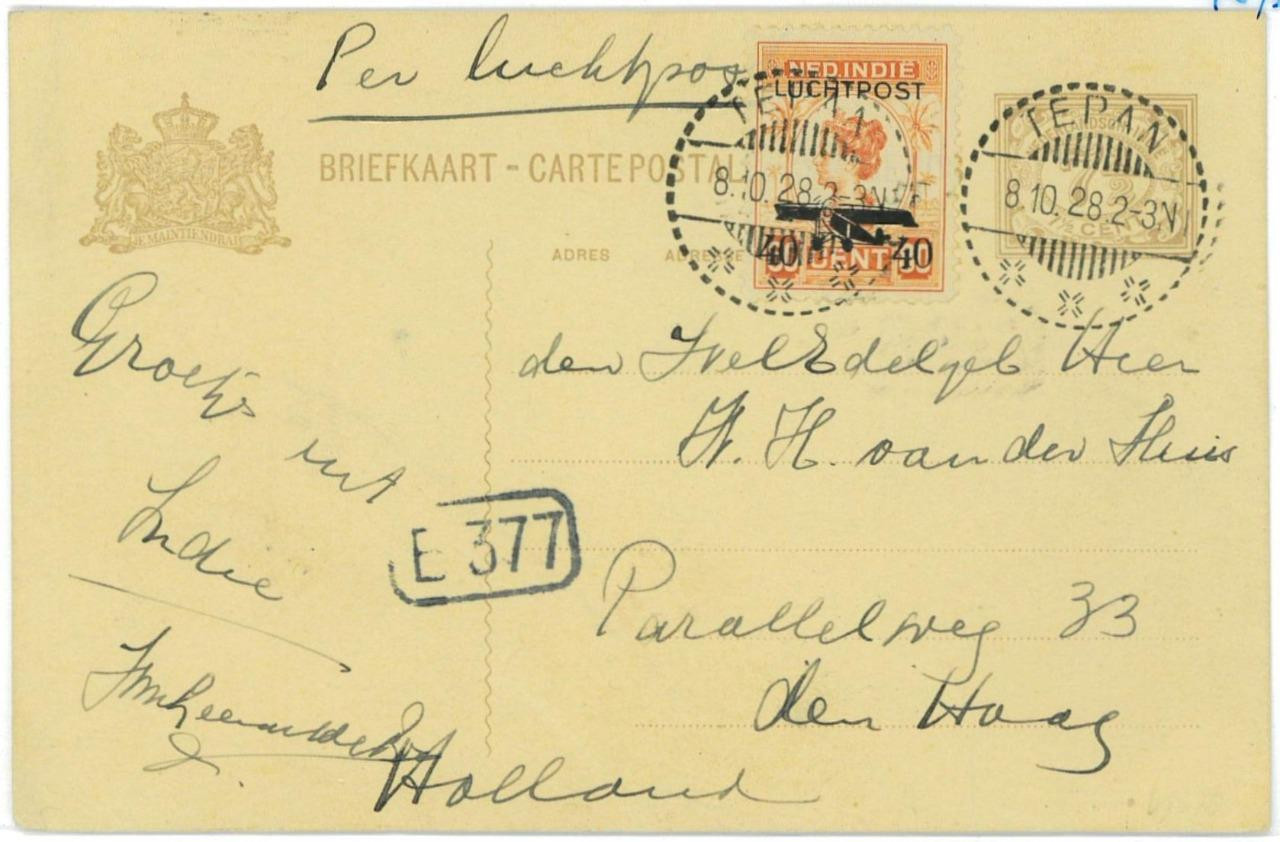 Per luchtpost
NED. INDIË
LUCHTPOST
40 CENT 40
JE MAINTIENDRAI
BRIEFKAART - CARTE POSTALE
TEPAN
8.10.28.2-3N
TEPAN
8.10.28.2-3N
7½ CENT
ADRES ADRESSE
den WelEdelgeb Heer
W. H. van der Sluis
Parallelweg 33
den Haag
Holland
Groetjes
uit
Indie
E 377